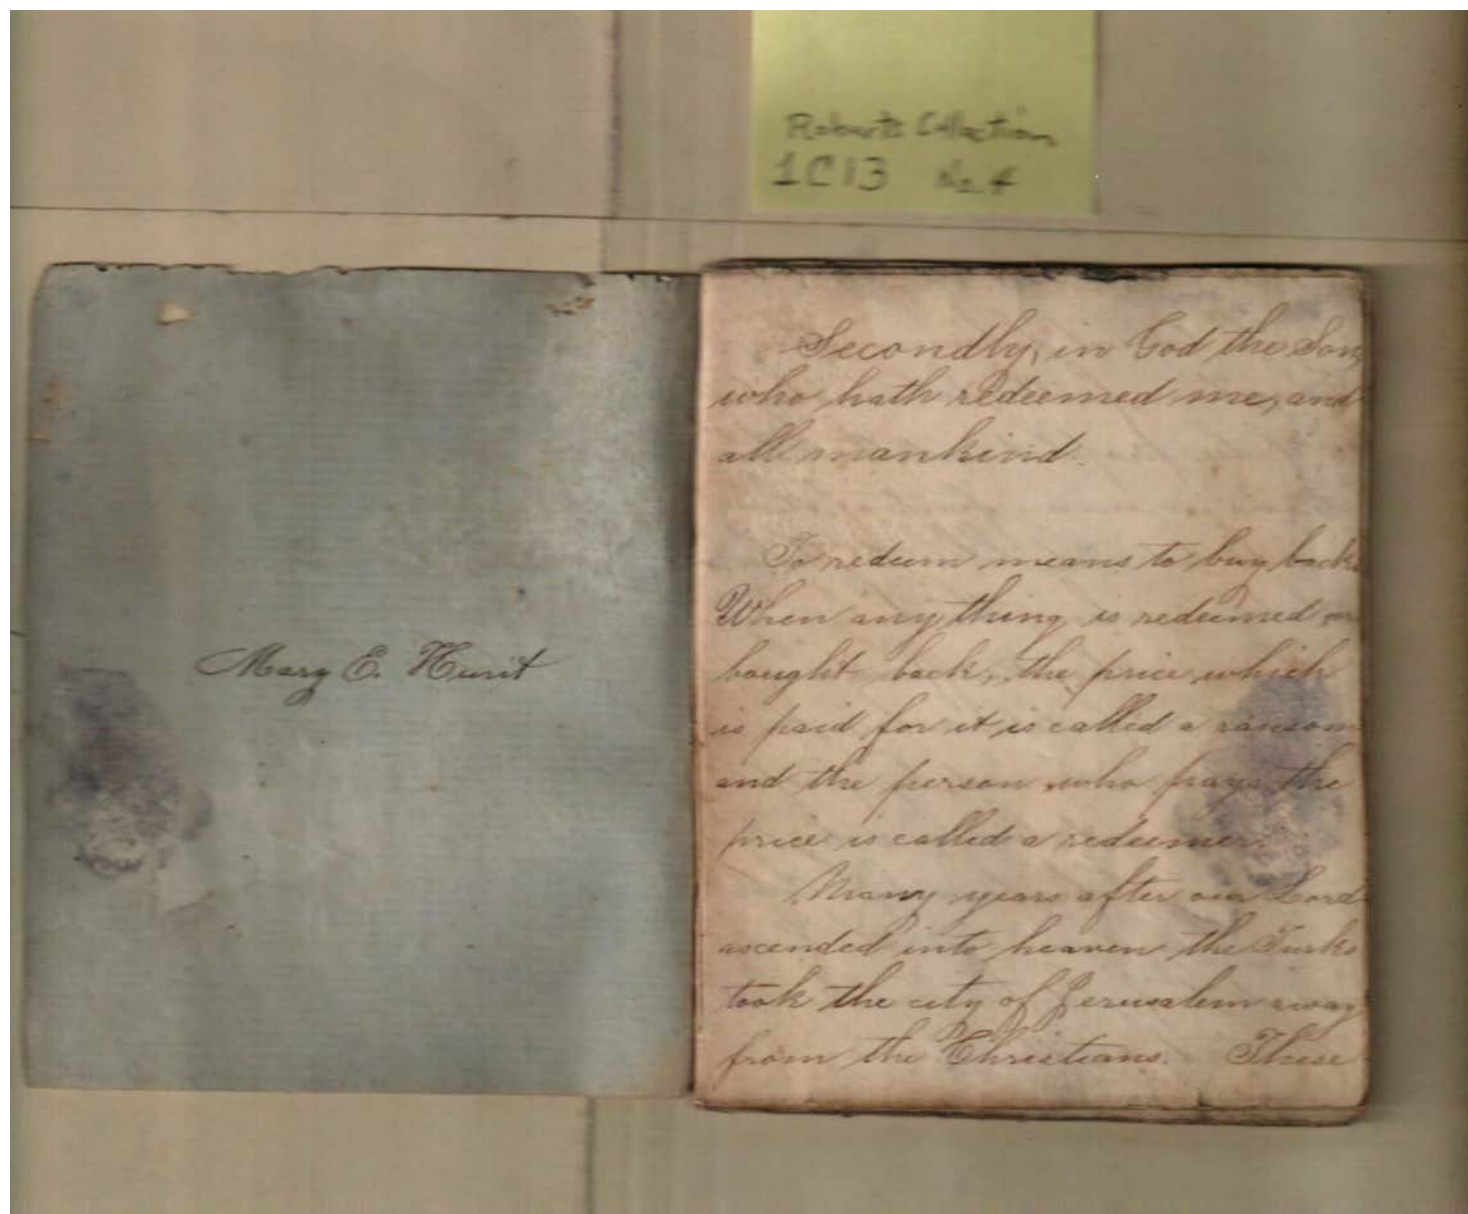 Roberts Collection
1C13 No. 4
Mary E.
Secondly, in God the Son,
who hath redeemed me, and
all mankind.
To redeem means to buy back.
When any thing is redeemed or
bought back, the price which
is paid for it is called a ransom
and the person who pays the
price is called a redeemer.
Many years after our Lord
ascended into heaven the Turks
took the city of Jerusalem away
from the Christians. These